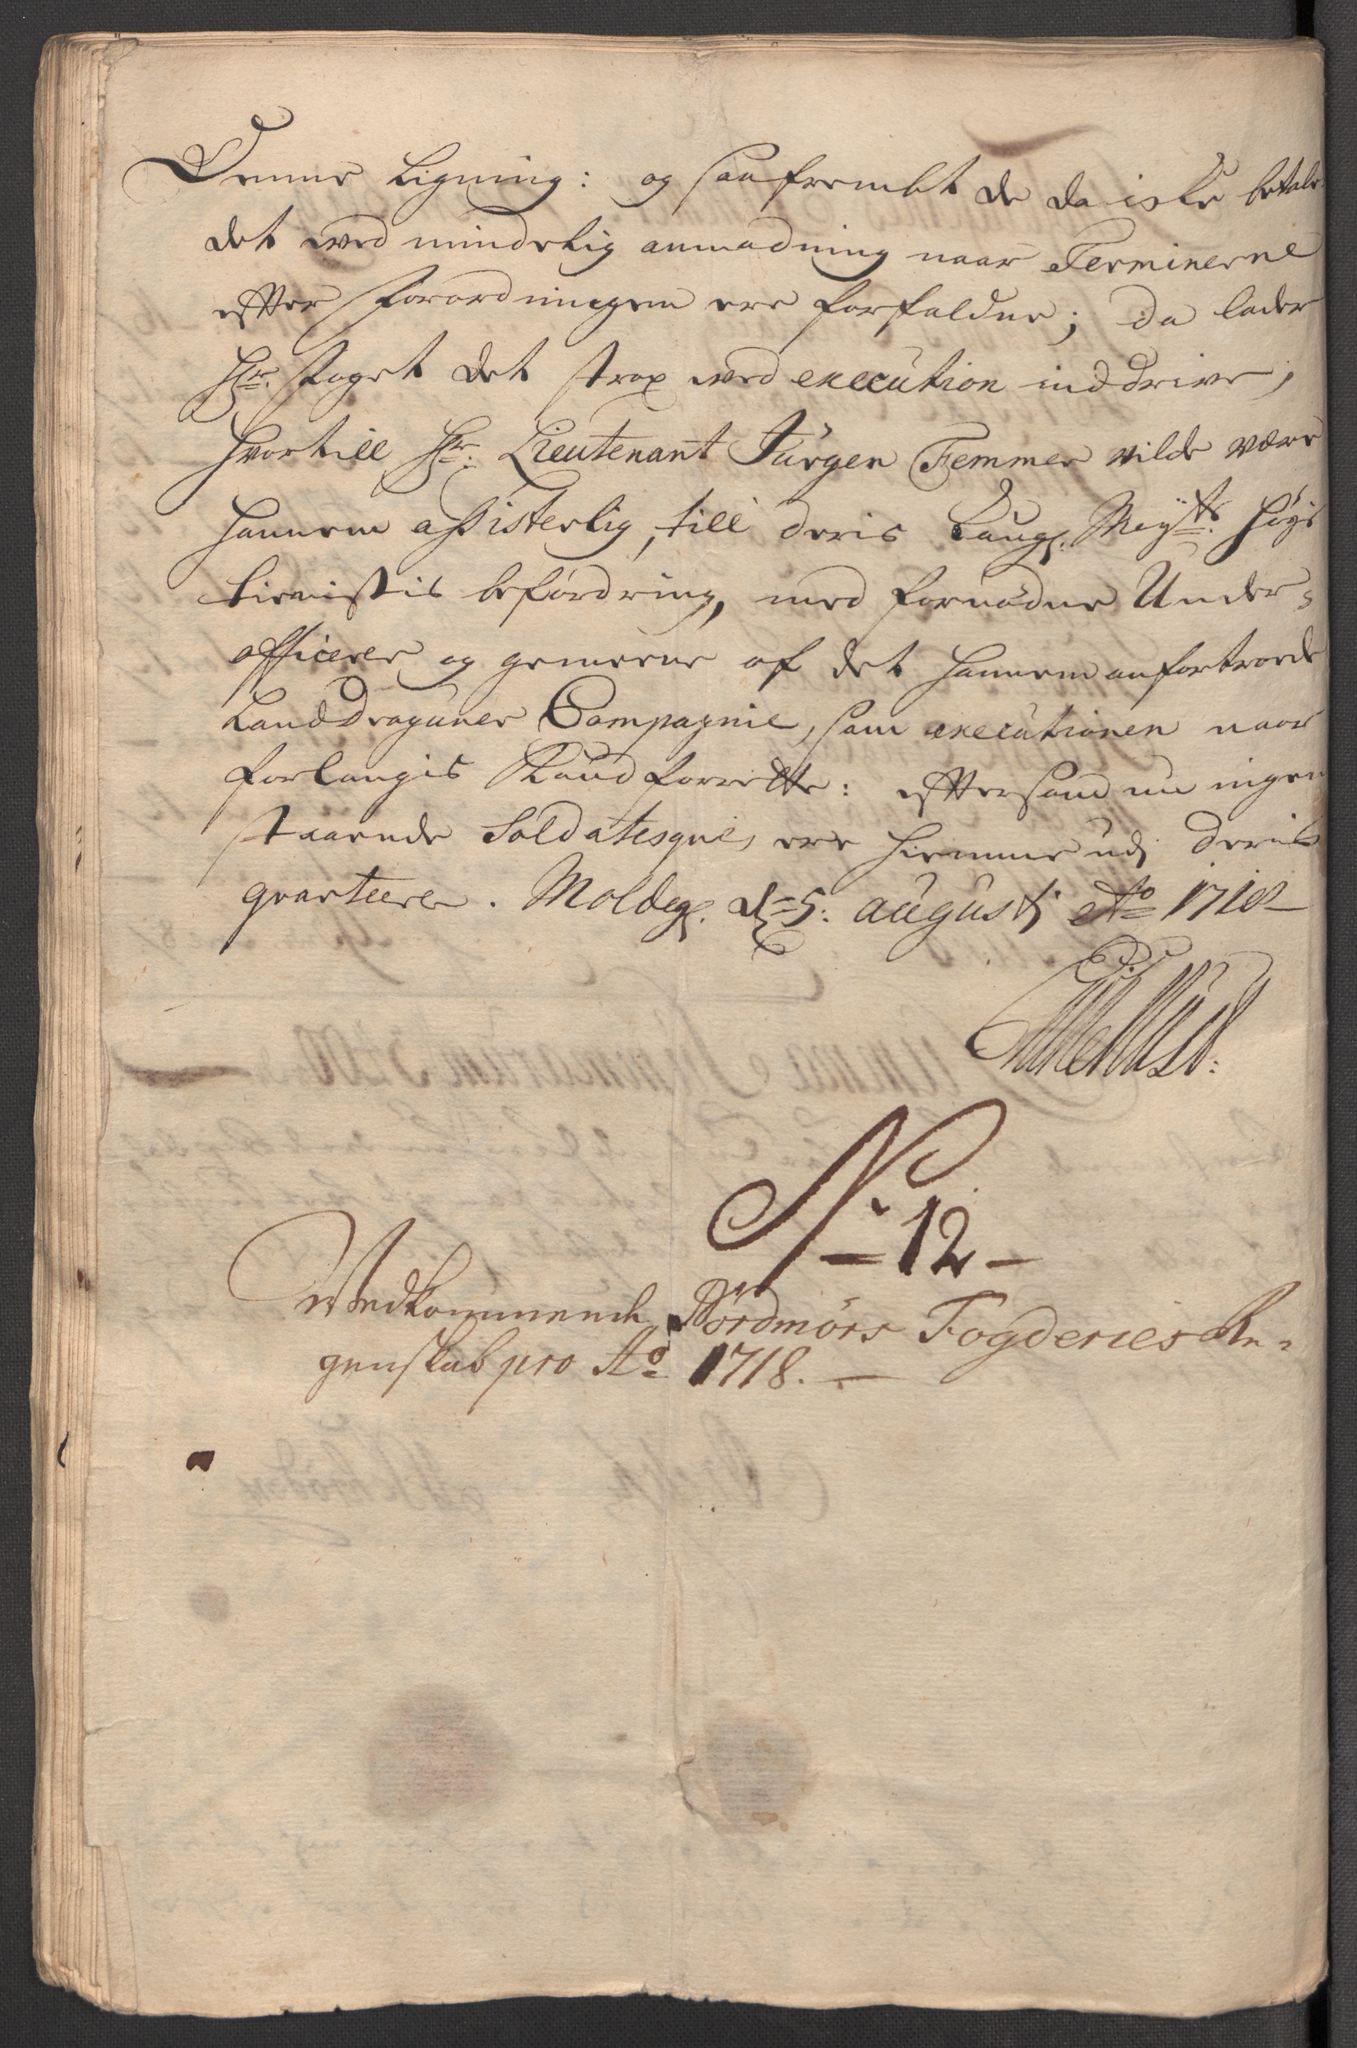 Denne Ligning: og saafrembt de da iche betale
det med mindelig anmodning naar Terminerne
efter Forordningen ere forfaldne; da lader
Hr: Foget det strax med execution inddrive,
hvortill Hr: Lieutenant Jürgen Femmer vilde være
hannem assisterlig, till deris Kongl. Mayts: høye
tienistis befordring, med fornødne Under-
officerer og gemeene af det hannem anfortroede
Landdraguner Compagnie, som executionen naar
forlangis skand forrette: eftersom nu ingen
staaende Soldatesque, ere hiemme udj deris
qvarteere. Molde, d: 5: augustj Ao 1718
No 12
Vedkommende Nordmørs Fogderies Re-
genskab pro Ao 1718.